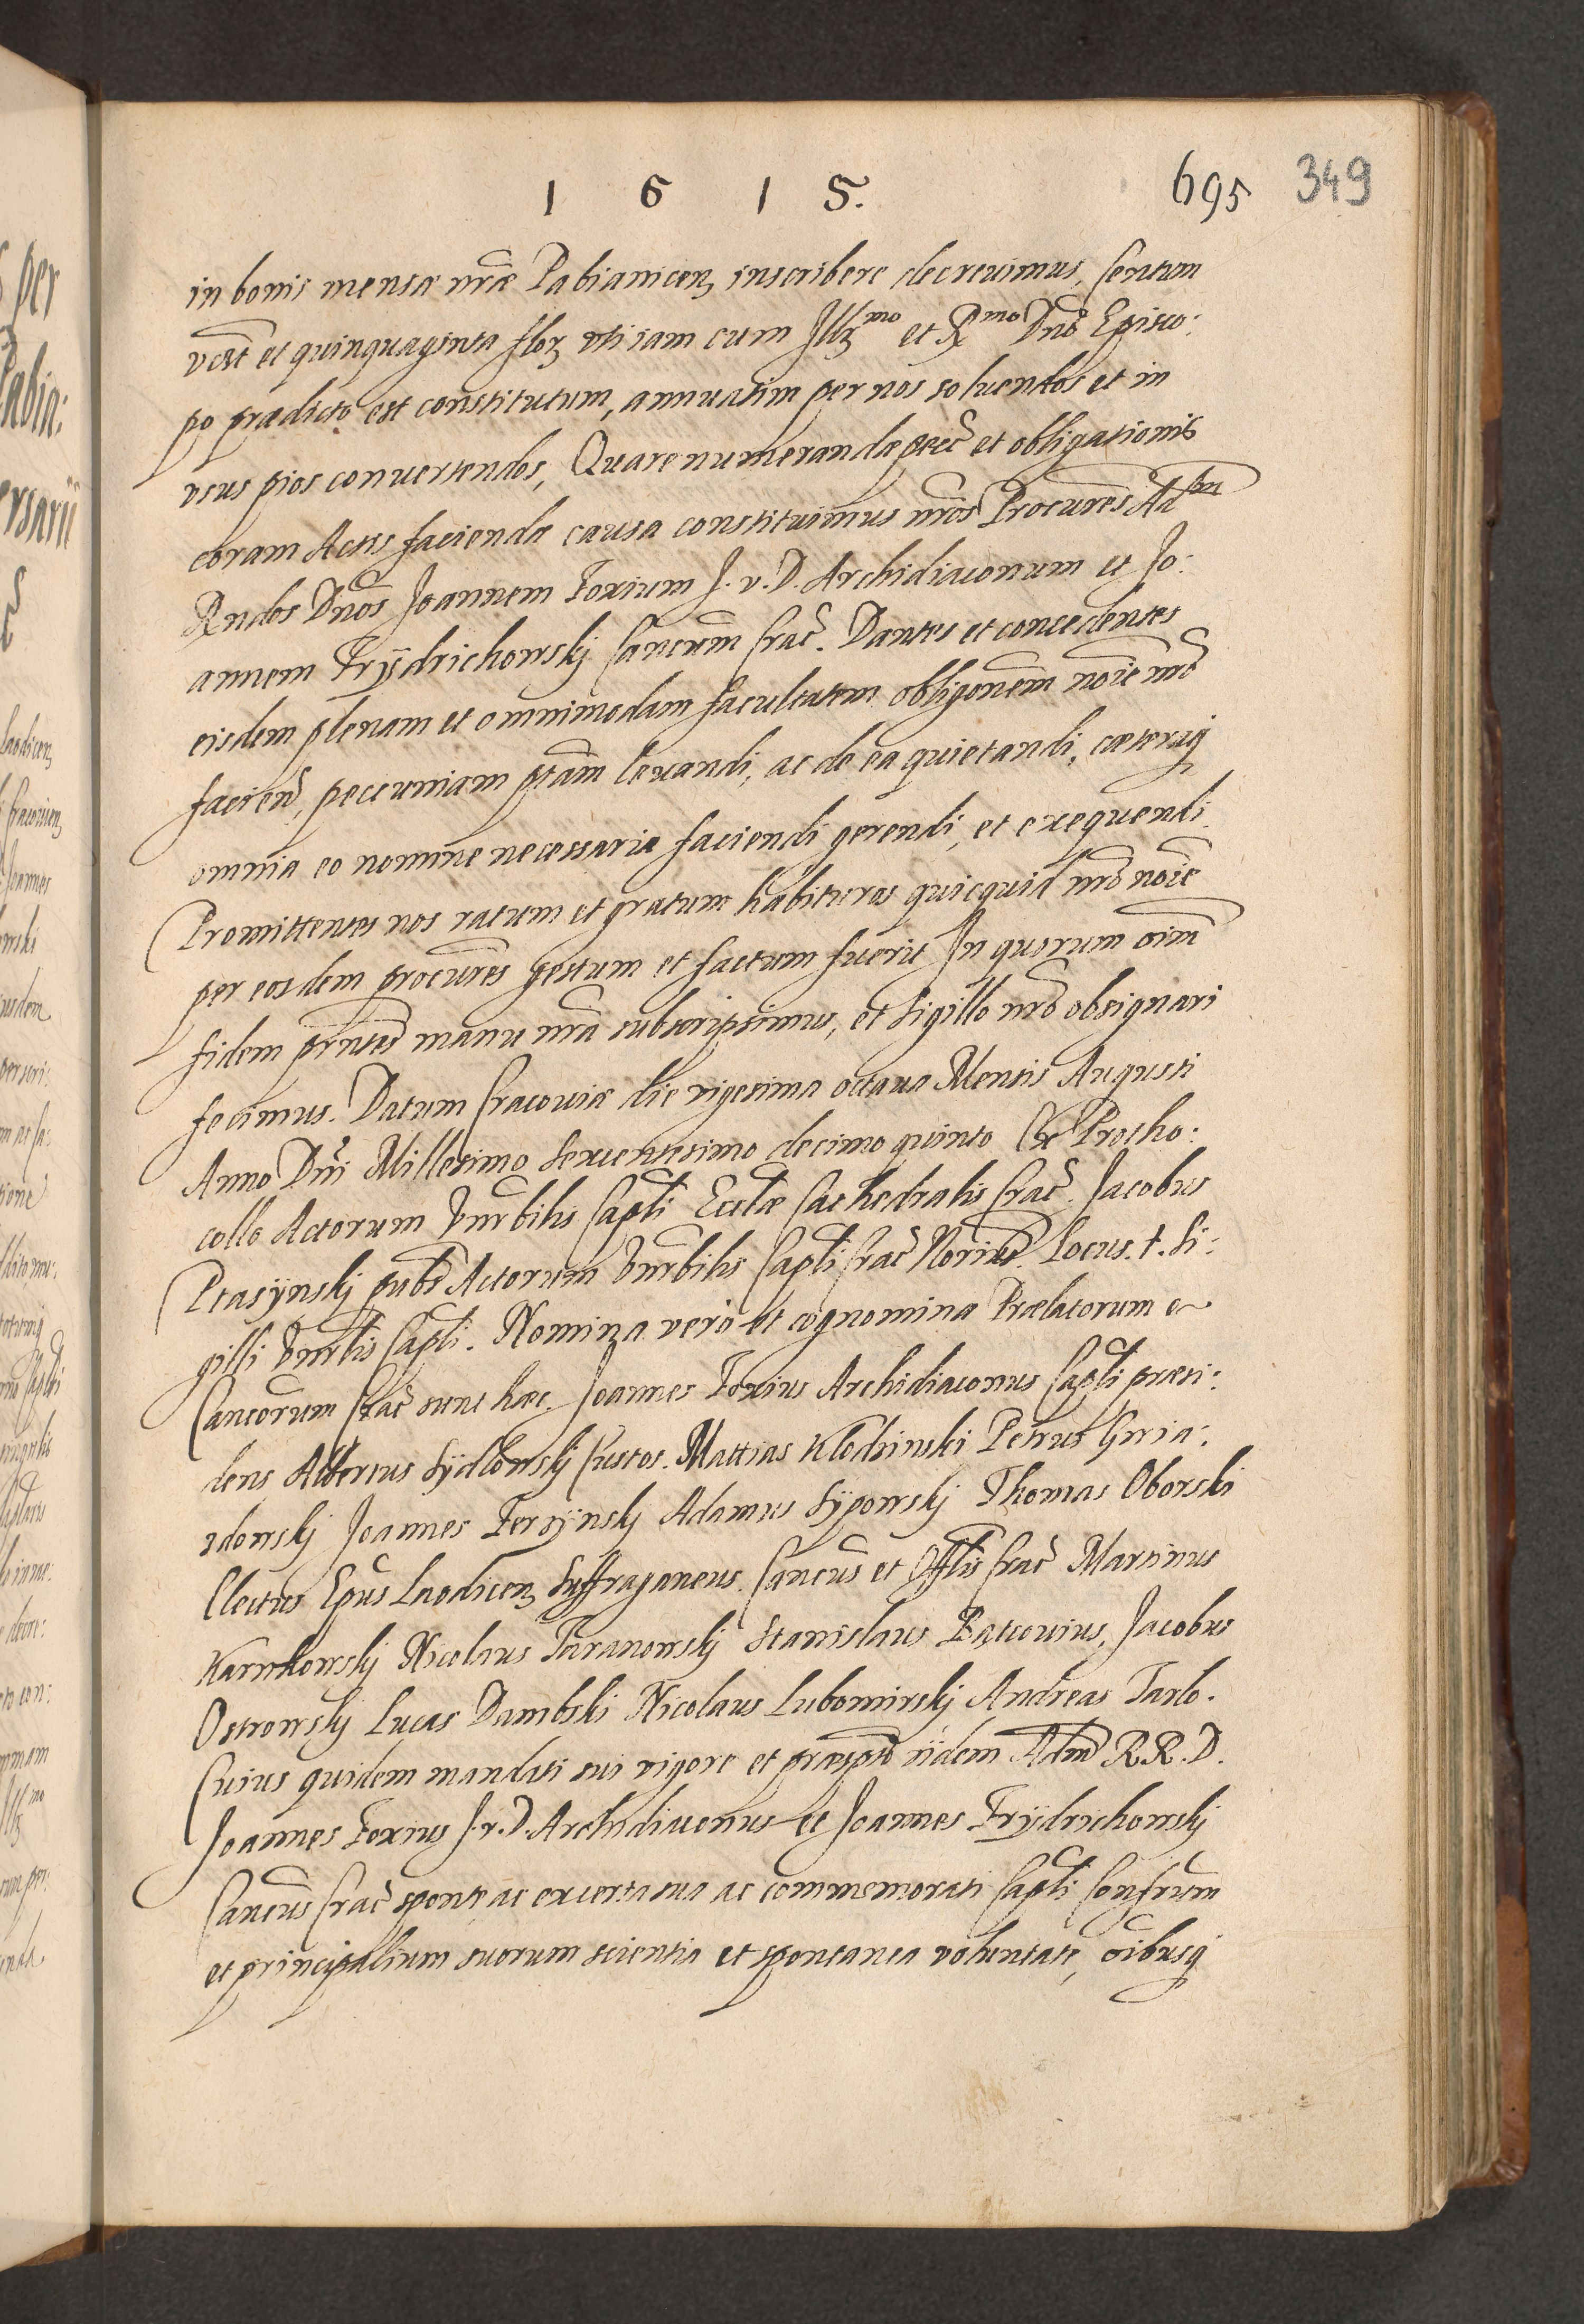 1 6 1 5.
695 349
in bonis mensæ nr̃æ Pabianicen̨ inscribere decreuimus, Centum
vero et quinquaginta flor̨ vti iam cum Illr̨mo et Rmo Dno Episco:
po prædicto est constitutum, annuatim per nos soluendos et in
vsus pios conuertendos, Quare numerandæ ptæ et obligationis
coram Actis faciendæ causa constituimus nr̃os Procures Ad
Rndos Dnos Joannem Foxium J. v. D. Archidiaconum et Jo:
annem Frÿdrichowskj Cancum Crac̃. Dantes et concedentes
eisdem plenam et omnimodam facultatem obligonem noie nr̃o
facien̄, pecuniam ptam leuandi, ac de ea quietandi, cæteraq̨
omnia eo nomine necessaria faciendi gerendi, et exequendi
Promittentes nos ratum et gratum habituros quicquid nr̃o noie
per eosdem procures gestum et factum fuerit In quorum oim̄
fidem prntes manu nr̃a subscripsimus, et Sigillo nr̃o obsignari
fecimus. Datum Cracouiæ die vigesima octaua Mensis Augusti
Anno Dni Millesimo Sexcentesimo decimo quinto Ex Protho:
collo Actorum Vnrbilis Capli Eccliæ Cathedralis Crac̃. Jacobus
Ptasÿnskj pubs Actorum Vnrbilis Capli Crac̃ Norius. Locus. †. Si:
gilli Vnrlis Capli. Nomina vero et cognomina Prælatorum e~
Cancorum Crac̃ sunt hæc. Joannes Foxius Archidiaconus Capli præsi:
dens Albertus Sÿdlowskj Custos. Mattias Kłodzinski Petrus Gnia:
zdowskj Joannes Ferzÿnskj Adamus Sÿpowskj Thomas Oborski
Electus Epus Laodicen̨ Suffraganeus. Cancus et Offlis Crac̃ Martinus
Karnkowskj Nicolaus Taranowskj Stanislaus Jacobus
Ostrowskj Lucas Dambski Nicolaus Lubomirskj Andreas Tarlo.
Cuius quidem mandati sui vigore et præsptu iidem Adm R.R.D.
Joannes Foxius J.v.D. Archidiaconus et Joannes Frÿdrichowskj
Cancus Crac̃ sponte ac ex certa sua ac commemorati Capli Confrum
et principalium suorum scientia et spontanea voluntate, oibusq̨